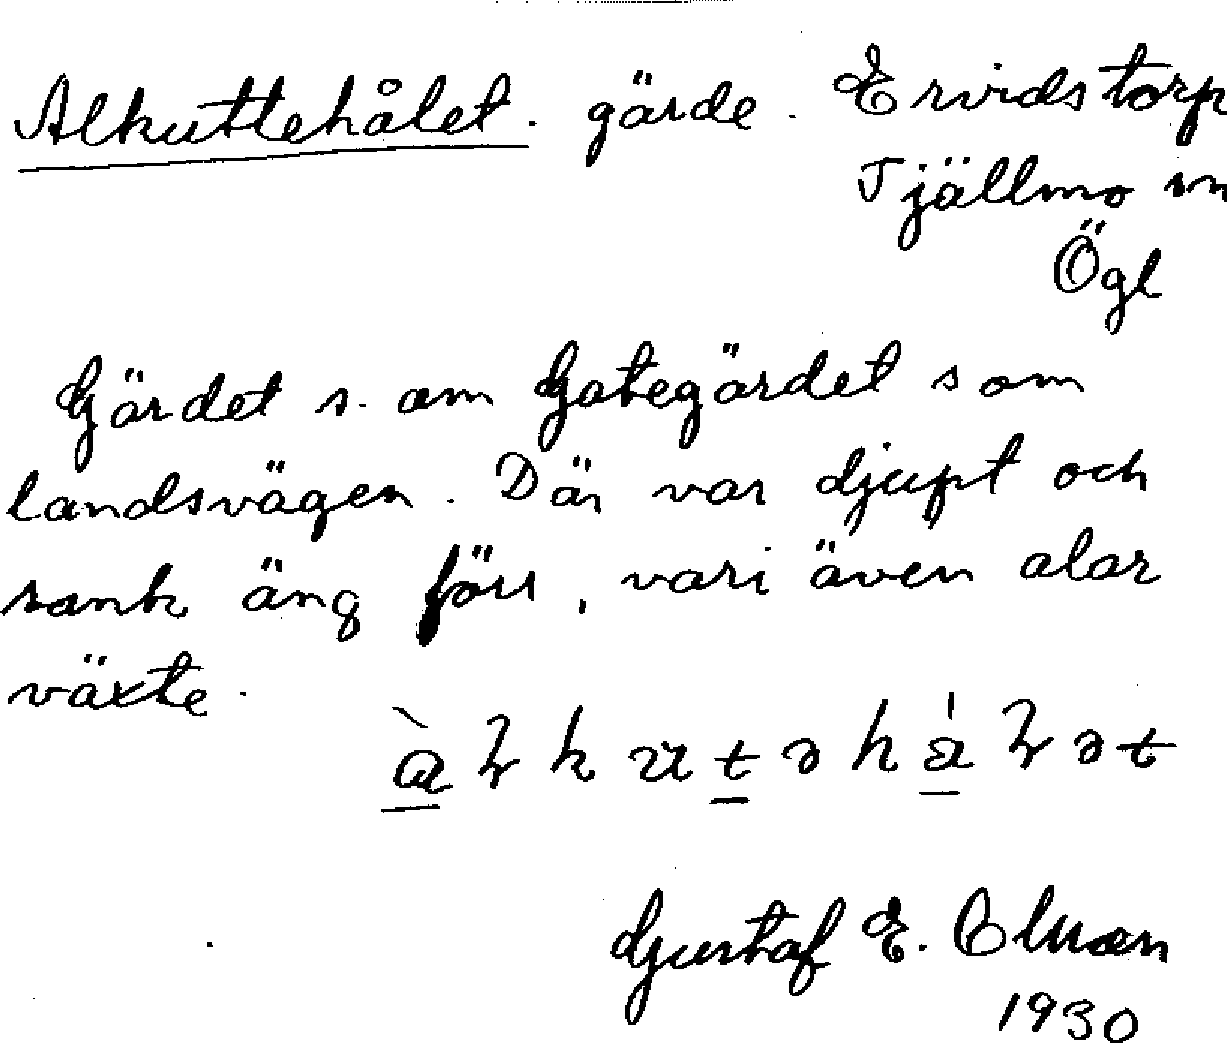 Alkuttehålet. gärde. Ervidstorp
Tjällmo sn
Ögl
Gärdet s. om Gategärdet s om
landsvägen. Där var djupt och
sank äng förr, vari även alar
växte.
Gustaf E.
1930